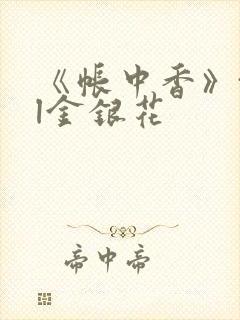 《帐中香》
金银花
帝中帝